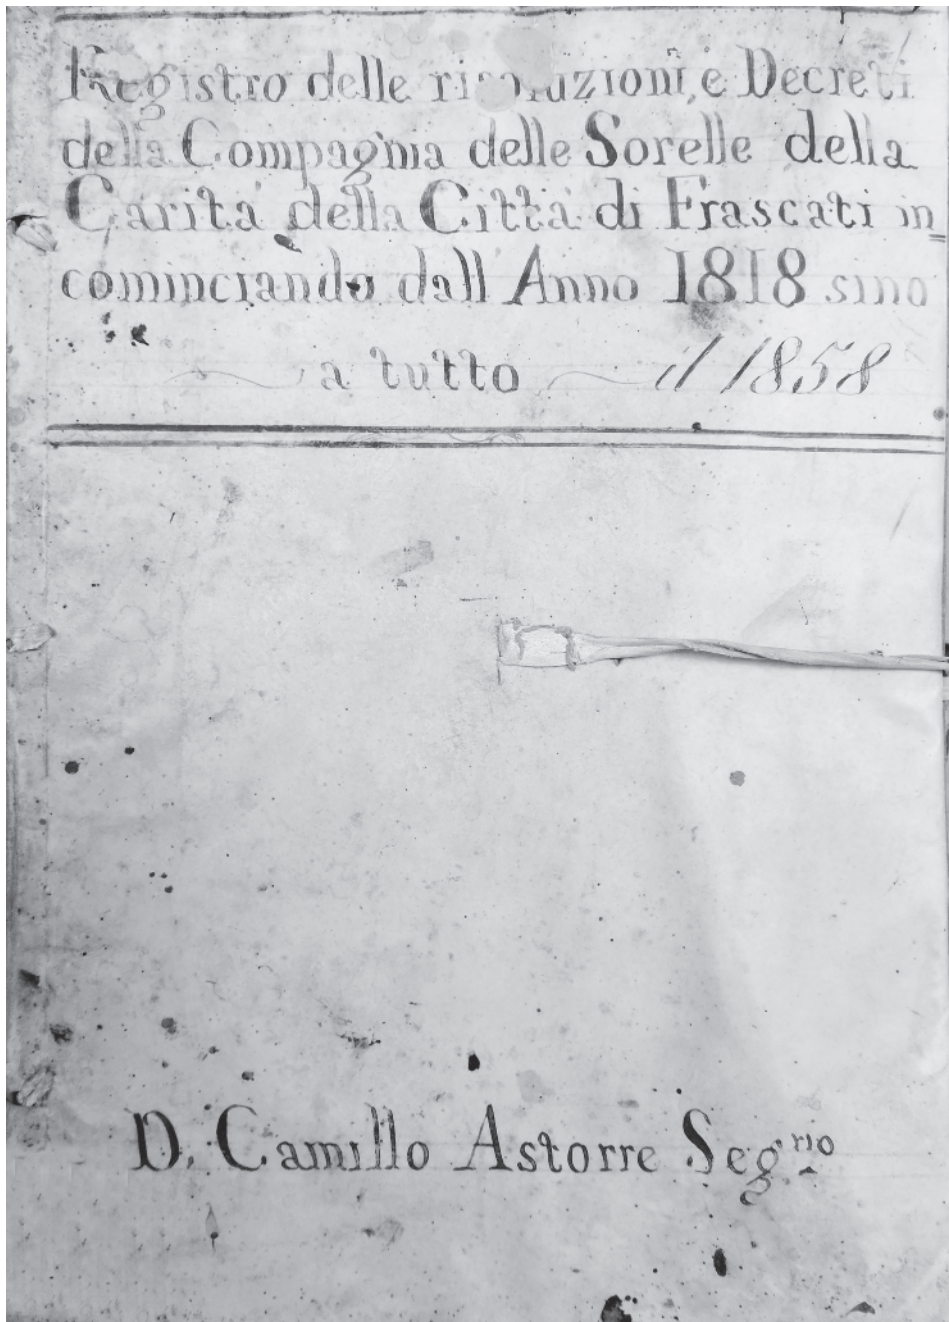 Registro delle risoluzioni, e Decreti
della Compagnia delle Sorelle della
Carità della Città di Frascati in=
cominciando dall'Anno 1818 sino
a tutto il 1858
D. Camillo Astorre Seg.rio